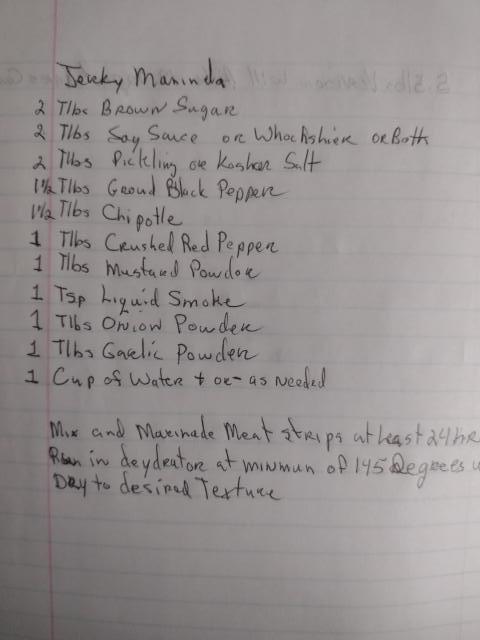 Jerky Maninda
2 Tlbs Brown Sugar
2 Tlbs Soy Sauce or Whochshier or Both
2 Tlbs Pickling or Koshar Salt
1 1/2 Tlbs Groud Black Pepper
1 1/2 Tlbs Chipotle
1 Tlbs Crushed Red Pepper
1 Tlbs Mustard Powdor
1 Tsp Liquid Smoke
1 Tlbs Onion Powder
1 Tlbs Garlic Powder
1 Cup of Water + or - as Needed
Mix and Marinade Meat strips at least 24 hr
Run in deydrator at minmun of 145 Degrees
Dry to desired Texture